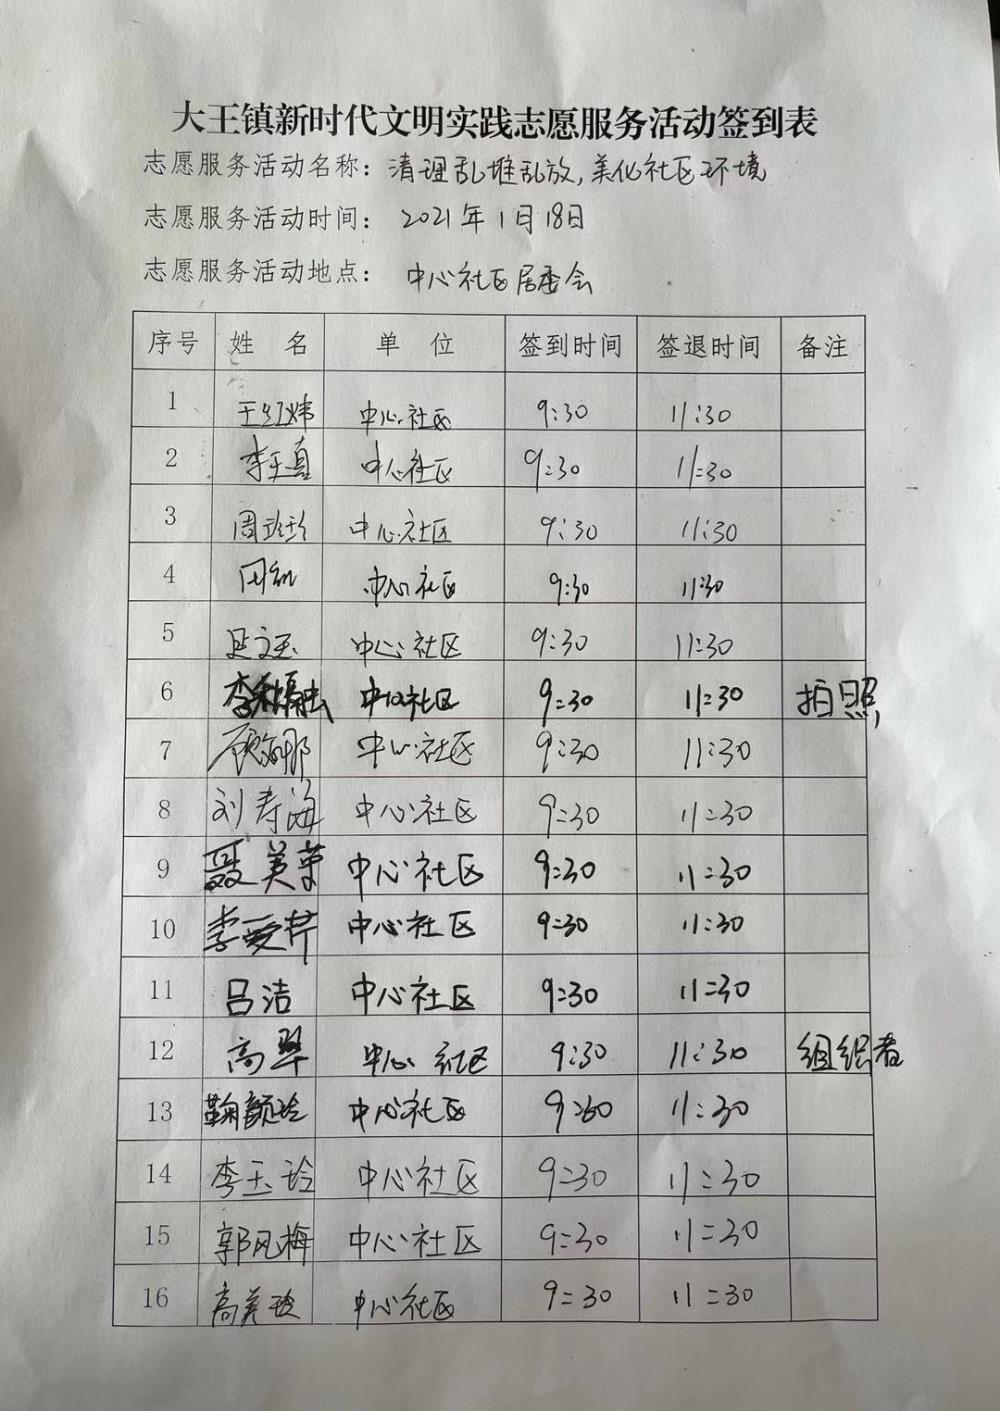 大王镇新时代文明实践志愿服务活动签到表
志愿服务活动名称：清理乱堆乱放，美化社区环境
志愿服务活动时间： 2021年1月18日
志愿服务活动地点： 中心社区居委会
序号 姓 名 单 位 签到时间 签退时间 备注
1 王红炜 中心社区 9:30 11:30
2 李玉真 中心社区 9:30 11:30
3 周玲玲 中心社区 9:30 11:30
4 中心社区 9:30 11:30
5 中心社区 9:30 11:30
6 中心社区 9:30 11:30 拍照
7 顾娜 中心社区 9:30 11:30
8 刘寿海 中心社区 9:30 11:30
9 聂美荣 中心社区 9:30 11:30
10 李爱芹 中心社区 9:30 11:30
11 吕洁 中心社区 9:30 11:30
12 高翠 中心社区 9:30 11:30 组织者
13 鞠颜玲 中心社区 9:30 11:30
14 李玉玲 中心社区 9:30 11:30
15 郭风梅 中心社区 9:30 11:30
16 高美玲 中心社区 9:30 11:30